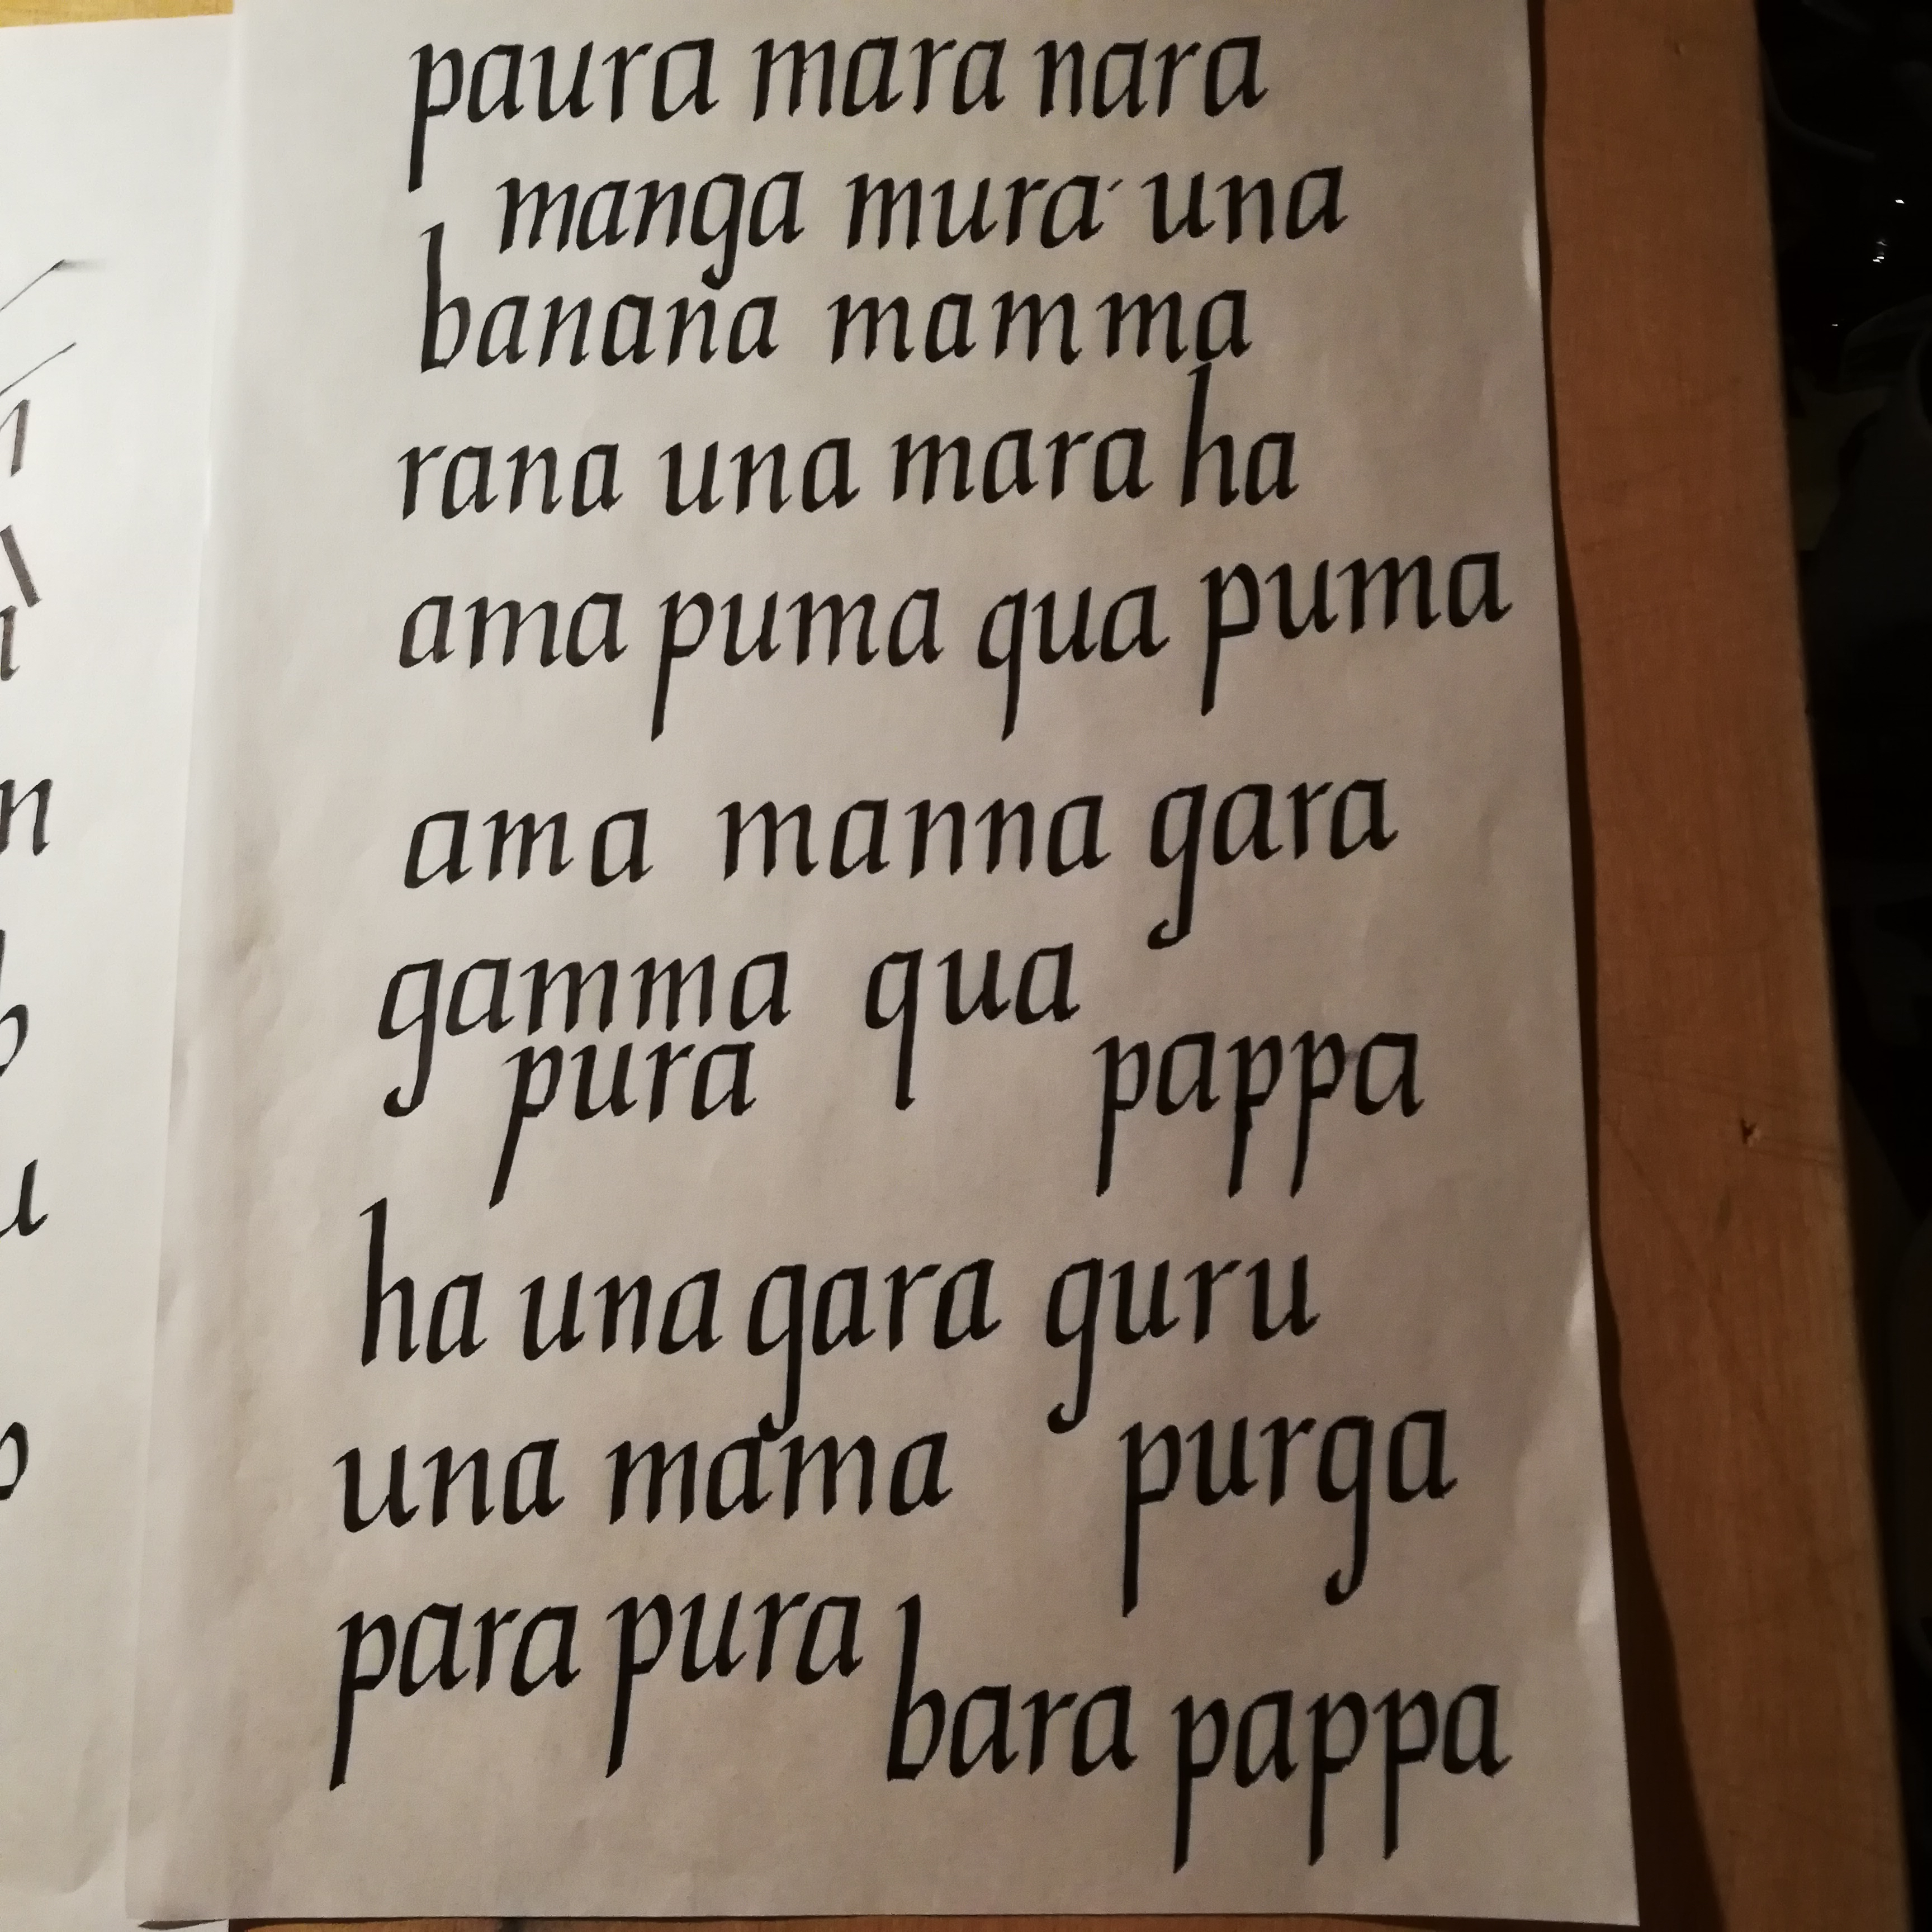 paura mara nara
manga mura una
banana mamma
rana una mara ha
ama puma qua puma
ama manna gara
gamma qua
pura pappa
ha una gara guru
una mama purga
para pura
bara pappa